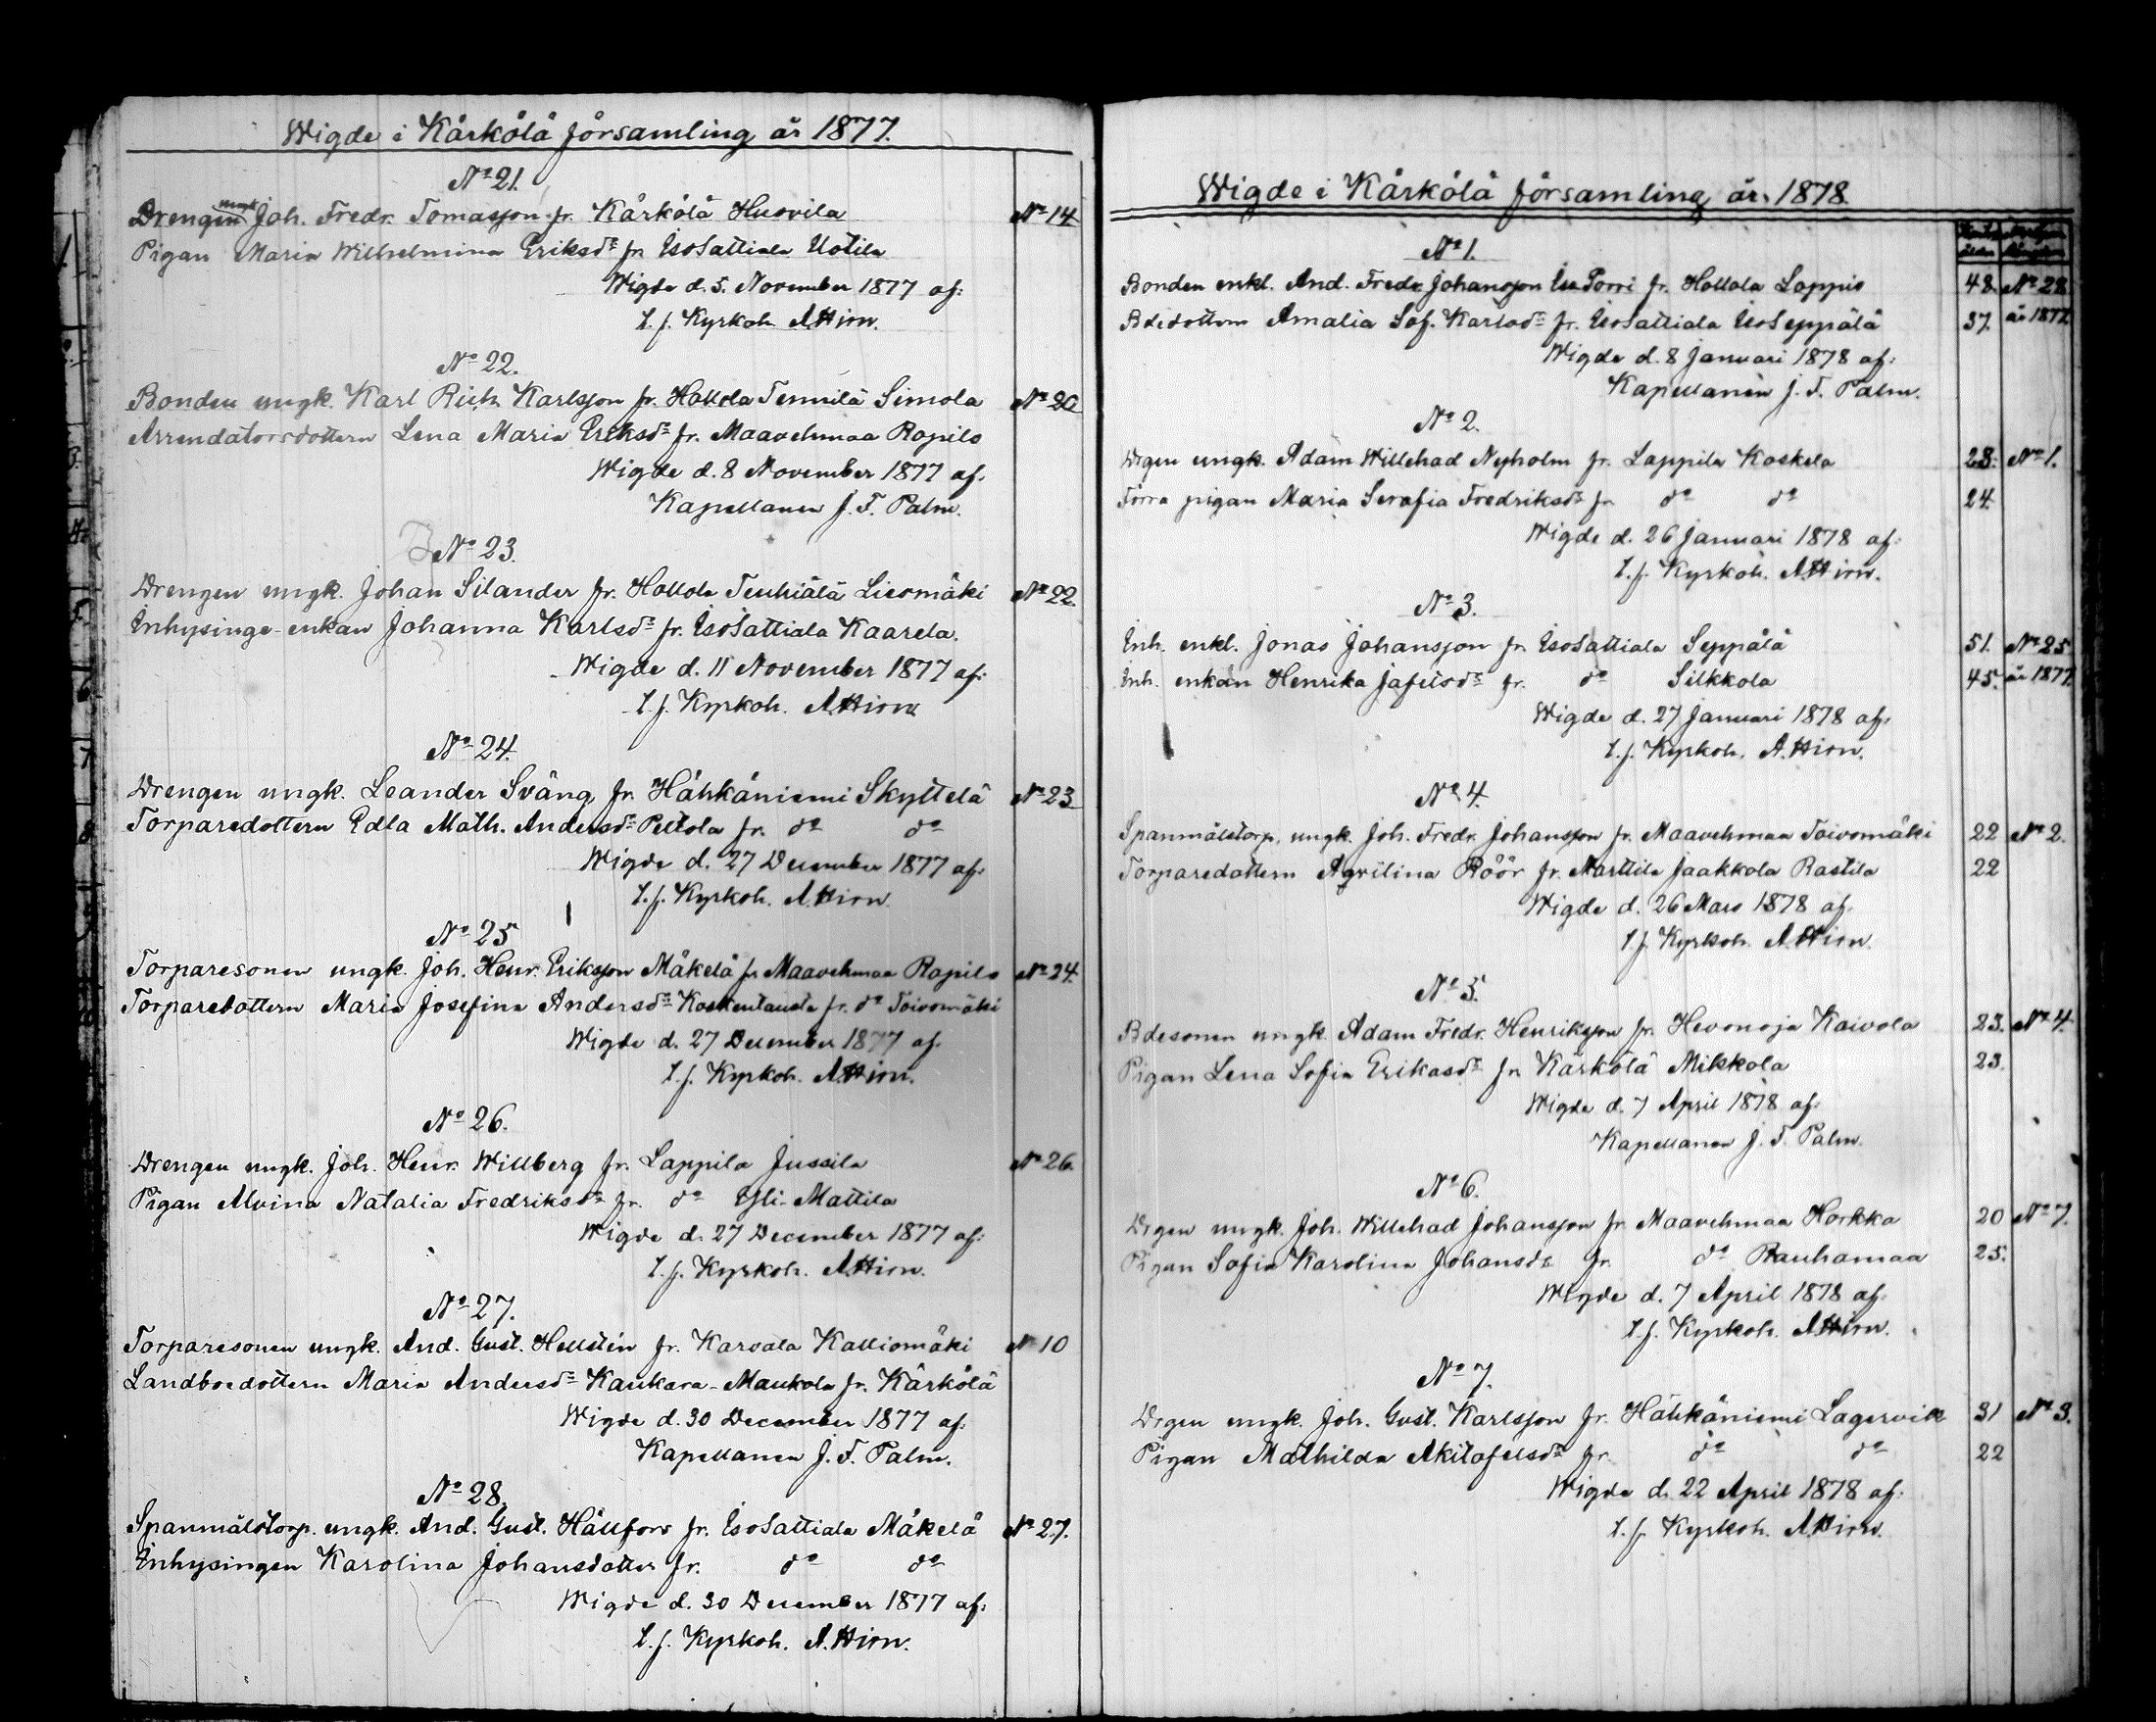 Wigde i Kärkölä församling år 1877.
No 21.
Drengen ungk. Joh. Fredr. Tomasson fr. Kärkölä Husvila No 14
Pigan Maria Wilhelmina Eriksdr fr. IsoSattiala Uotila
Wigde d. 5. November 1877 af:
t. f. Kyrkoh. A. Hirn.
No 22.
Bonden ungk. Karl Rich. Karlsson fr. Hollola Tennilä Simola No 20
Arrendatorsdottern Lena Maria Eriksdr fr. Maavehmaa Ropilo
Wigde d. 8 November 1877 af.
Kapellanen J. F. Palm.
No 23.
Drengen ungk. Johan Silander fr. Hollola Tenhiälä Liesmäki No 22.
Inhysinge-enkan Johanna Karlsdr fr. IsoSattiala Kaarela.
Wigde d. 11 November 1877 af:
t. f. Kyrkoh. A. Hirn
No 24.
Drengen ungk. Leander Sväng fr. Hähkäniemi Skyttelä No 23
Torparedottern Edla Math. Andersdr Peltola fr. do do
Wigde d. 27 December 1877 af:
t. f. Kyrkoh. A. Hirn
No 25
Torparesonen ungk. Joh. Henr. Eriksson Mäkelä fr Maavehmaa Ropilo No 24.
Torparedottern Maria Josefina Andersdr Koskentausta fr. do Toivomäki
Wigde d. 27 December 1877 af.
t. f. Kyrkoh. A. Hirn.
No 26.
Drengen ungk. Joh. Henr. Willberg fr. Lappila Jussila No 26.
Pigan Alvina Natalia Fredriksdr fr. do Yli-Mattila
Wigde d. 27 December 1877 af:
t. f. Kyrkoh. A. Hirn.
No 27.
Torparesonen ungk. And. Gust. Hellstén fr. Karvala Kalliomäki No 10
Landboedottern Maria Andersdr Kaukara-Maukola fr. Kärkölä
Wigde d. 30 December 1877 af.
Kapellanen J. F. Palm.
No 28.
Spanmålstorp. ungk. And. Gust. Hällfors fr. IsoSattiala Mäkelä No 27.
Inhysingen Karolina Johansdotter fr. do do
Wigde d. 30 December 1877 af:
t. f. Kyrkoh. A. Hirn.
Wigde i Kärkölä församling år 1878.
No 1.
Bonden enkl. And. Fredr Johansson Iso Porri fr. Hollola Lappis 48. No 28
Bdedottern Amalia Sof. Karlsdr fr. IsoSattiala IsoSeppälä 37. år 1877
Wigde d. 8 Januari 1878 af:
Kapellanen J. F. Palm.
No 2.
Drgen ungk. Adam Willehad Nyholm fr. Lappila Koskela 28. No 1.
Förra pigan Maria Serafia Fredriksdr fr do do 24.
Wigde d. 26 Januari 1878 af:
t. f. Kyrkoh. A. Hirn.
No 3.
Inh. enkl. Jonas Johansson fr IsoSattiala Seppälä 51. No 25
Inh. enkan Henrika Jafetsdr fr. do Silkkola 45. år 1877.
Wigde d. 27 Januari 1878 af:
t. f. Kyrkoh. A. Hirn.
No 4.
Spanmålstorp. ungk. Joh. Fredr. Johansson fr. Maavehmaa Toivomäki 22 No 2.
Torparedottern Agvilina Röör fr. Marttila Jaakkola Rastila 22
Wigde d. 26 Mars 1878 af.
t. f. Kyrkoh. A. Hirn.
No 5.
Bdesonen ungk. Adam Fredr. Henriksson fr. Hevonoja Kaivola 23. No 4.
Pigan Lena Sofia Erikasdr fr Kärkölä Mikkola 23.
Wigde d. 7 April 1878 af:
Kapellanen J. F. Palm.
No 6.
Drgen ungk. Joh. Willehad Johansson fr. Maavehmaa Horkka 20 No 7.
Pigan Sofia Karolina Johansdr fr. do Rauhamaa 25.
Wigde d. 7 April 1878 af.
t. f. Kyrkoh. A. Hirn.
No 7.
Drgen ungk. Joh. Gust. Karlsson fr. Hähkäniemi Lagervik 31 No 3.
Pigan Mathilda Akitofelsdr fr. do do 22
Wigde d. 22 April 1878 af.
t. f. Kyrkoh. A. Hirn.